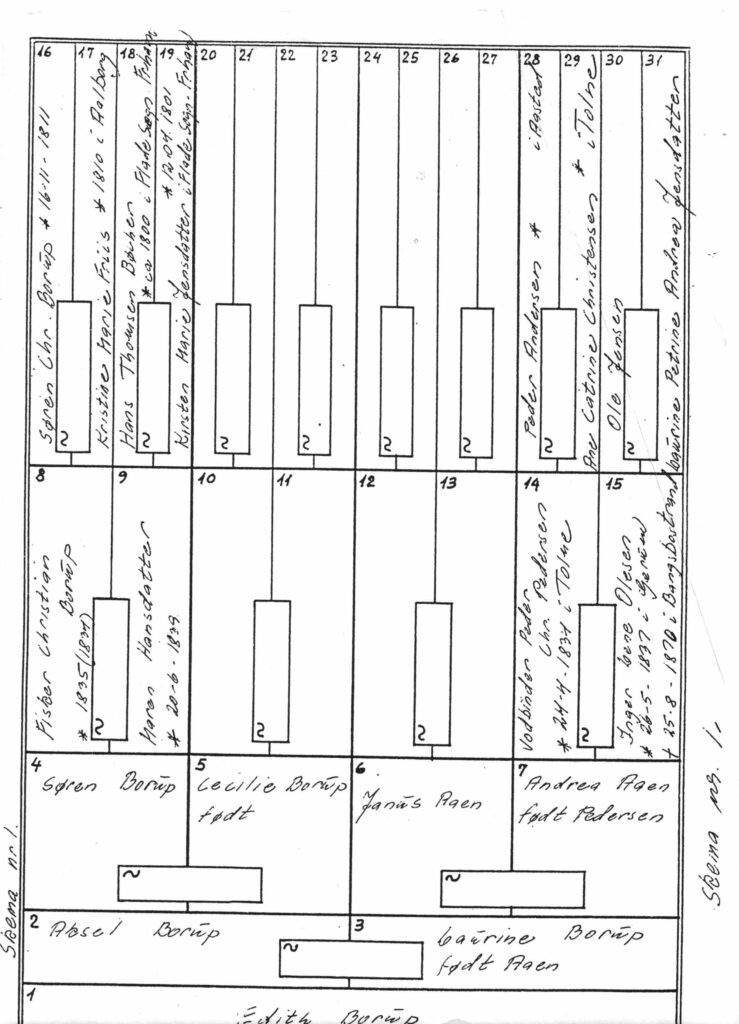 16 17 18 19 20 21 22 23 24 25 26 27 28 29 30 31
Søren Chr. Borup * 16-11-1811
Kristine Marie Friis * 1810 i Aalborg
Hans Thomsen
* ca 1800 i Flade Sogn. Frhavn
Kirsten Marie Jensdatter i Flade Sogn. Frhavn
* 12.04.1801
Peder Andersen * i Aasted
Ane Catrine Christensen * i Tolne
Ole Jensen
Laurine Petrine Andrea Jensdatter
8 9 10 11 12 13 14 15
Fisker Christian
Borup
* 1835 (1834)
Maren Hansdatter
* 20-6-1839
Vodbinder Peder
Chr. Pedersen
* 24-4-1834 i Tolne
Inger Lene Olesen
* 26-5-1837 i
+ 25-8-1870 i Bangsbostrand
4 5 6 7
Søren Borup
Cecilie Borup
født
Janus Agen
Andrea Agen
født Pedersen
2 3
Aksel Borup
Laurine Borup
født Agen
1
Edith Borup
Skema nr 1.
Skema nr. 1.